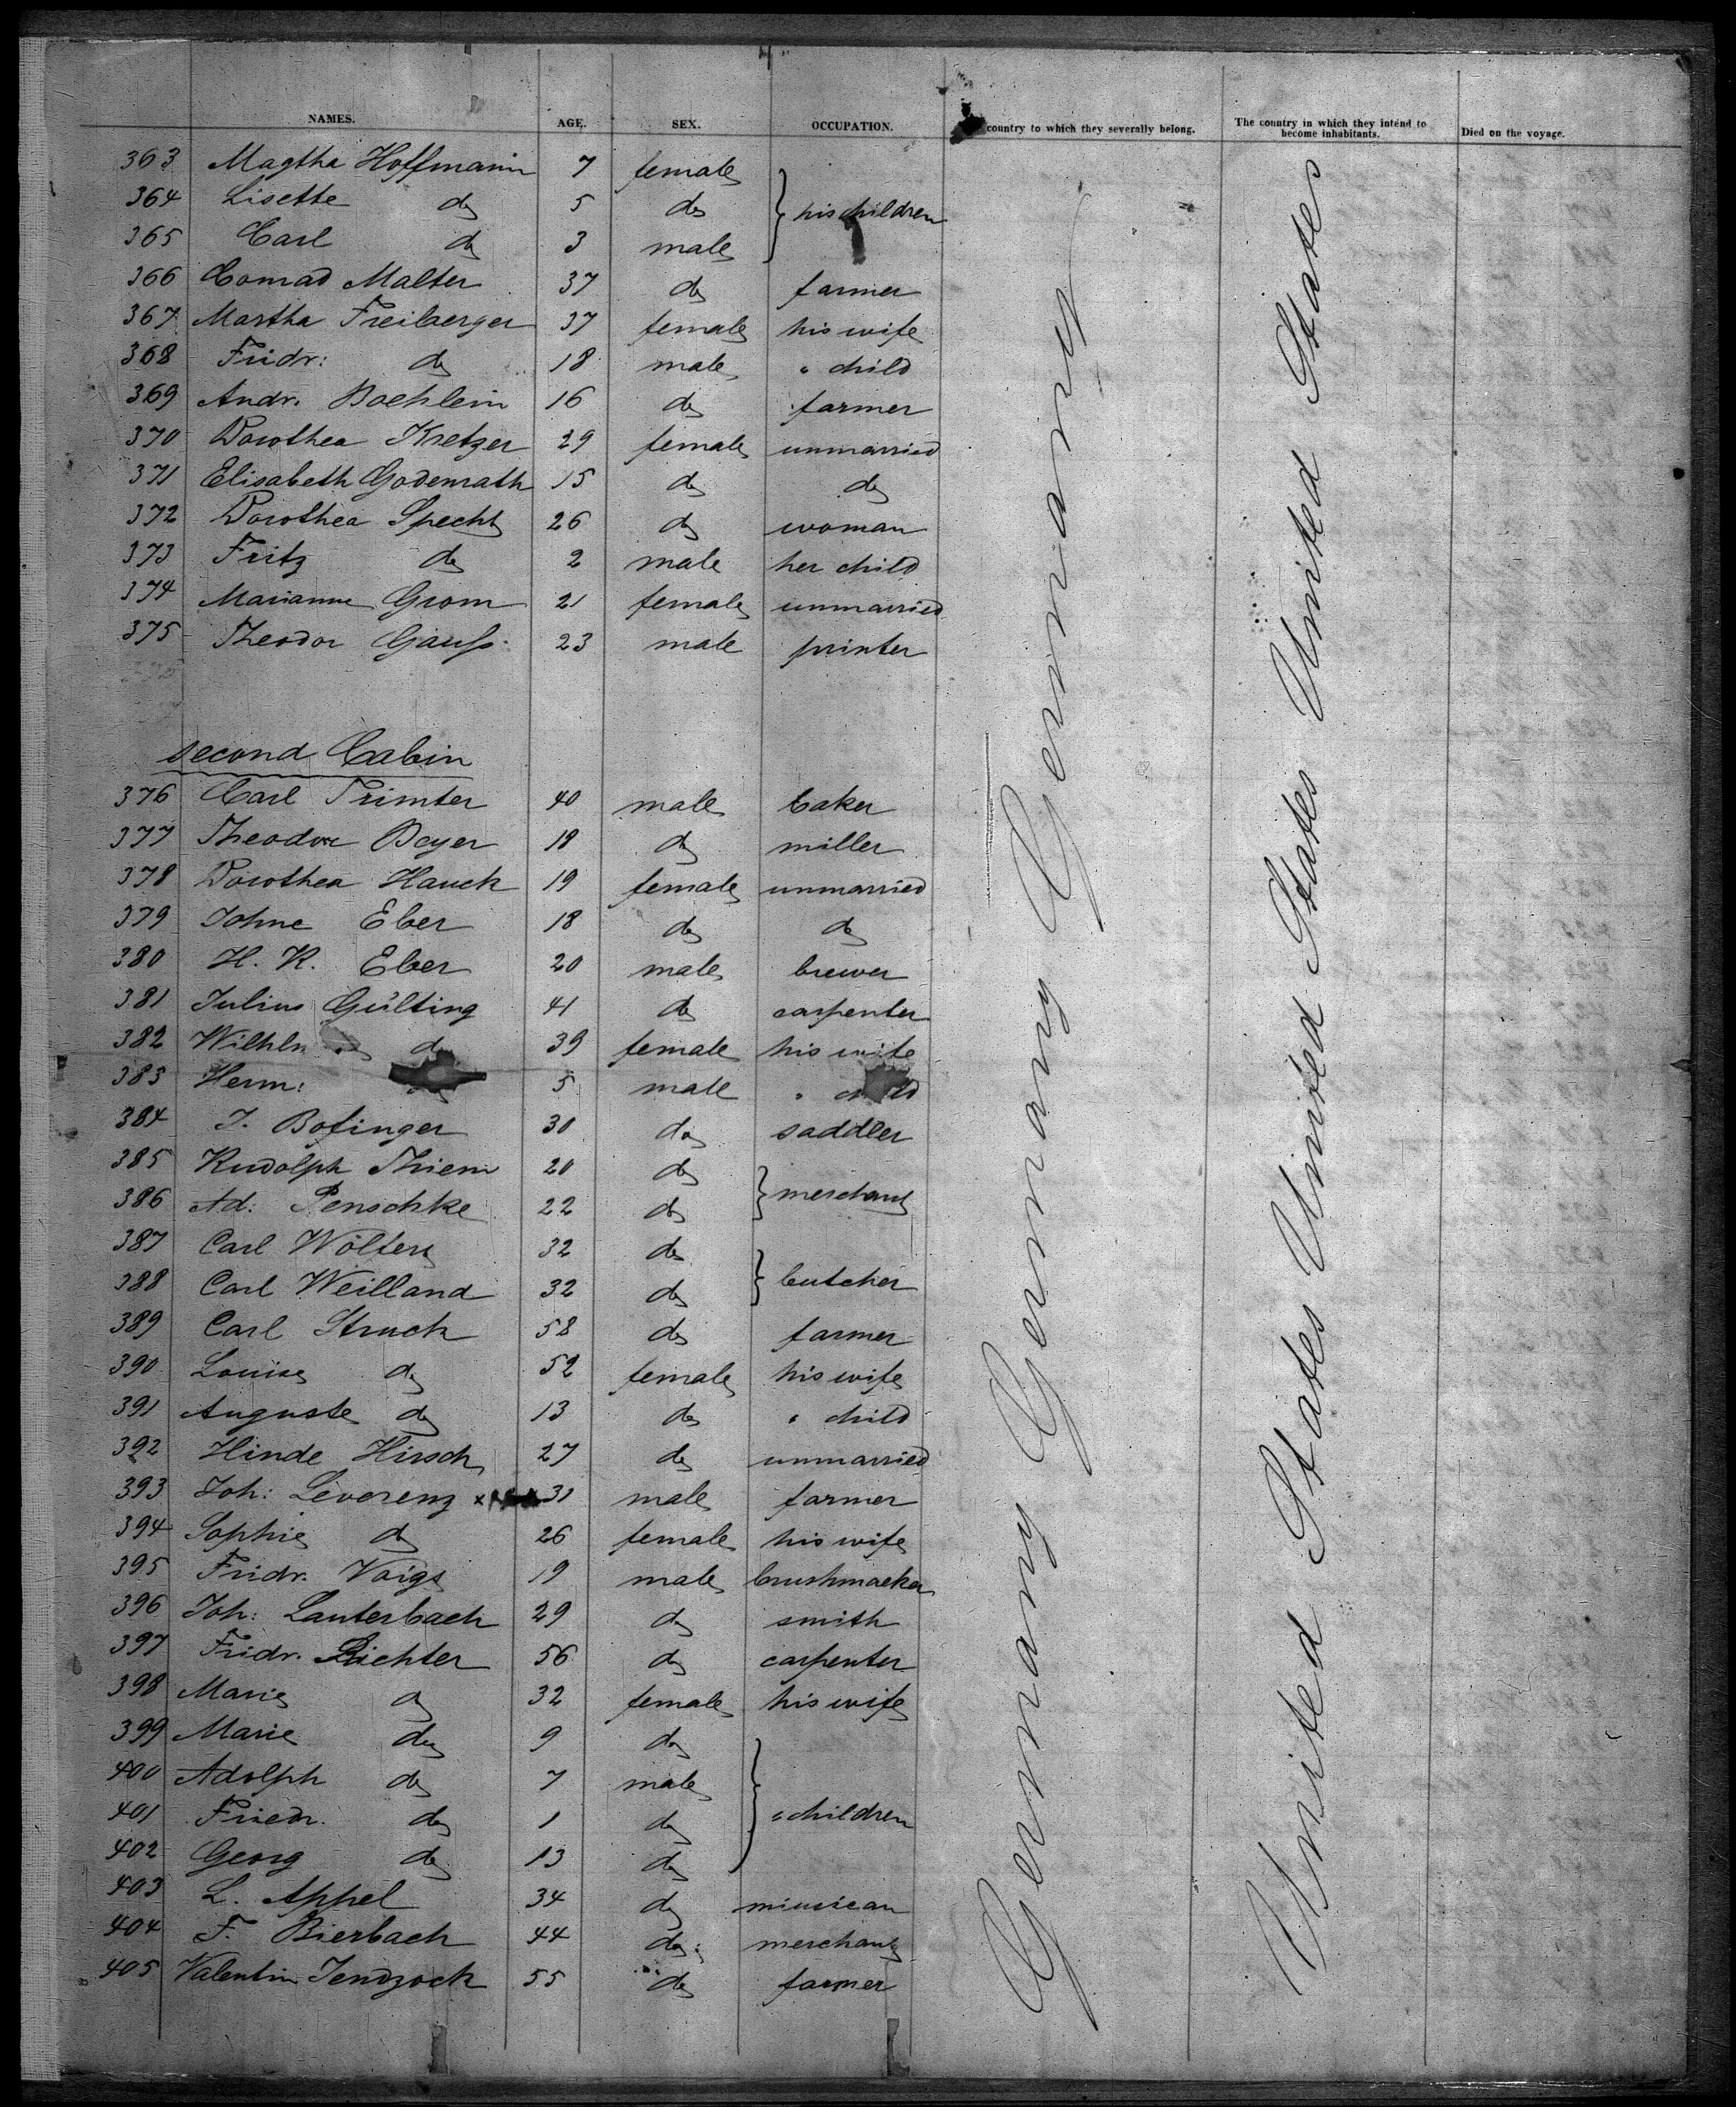 NAMES. AGE. SEX. OCCUPATION. country to which they severally belong. The country in which they intend to become inhabitants. Died on the voyage.
363 Magtha Hoffmann 7 female
364 Lisette do 5 do his children
365 Carl do 3 male
366 Conrad Malter 37 do farmer
367 Martha Freiberger 37 female his wife
368 Fridr: do 18 male " child
369 Andr. Boehlein 16 do farmer
370 Dorothea Kretzer 29 female unmarried
371 Elisabeth Godenrath 15 do do
372 Dorothea Specht 26 do woman
373 Fritz do 2 male her child
374 Marianne Grom 21 female unmarried
375 Theodor Gauss 23 male printer
second Cabin
376 Carl Trimter 40 male baker
377 Theodor Beyer 18 do miller
378 Dorothea Hauck 19 female unmarried
379 Johne Eber 18 do do
380 H. K. Eber 20 male brewer
381 Julius Gülting 41 do carpenter
382 do 39 female his wife
383 Herm: 5 male " child
384 J. Bofinger 30 do saddler
385 Rudolph Thiem 20 do
386 Ad: Penschke 22 do merchant
387 Carl Wölters 32 do
388 Carl Weilland 32 do butcher
389 Carl Struck 58 do farmer
390 Louise do 52 female his wife
391 Auguste do 13 do " child
392 Hinde Hirsch 27 do unmarried
393 Joh: Leverenz x 31 male farmer
394 Sophie do 26 female his wife
395 Fridr. Voigt 19 male brushmaeker
396 Joh: Lauterbach 29 do smith
397 Fridr. Richter 56 do carpenter
398 Marie do 32 female his wife
399 Marie do 9 do
400 Adolph do 7 male
401 Friedr. do 1 do " children
402 Georg do 13 do
403 L. Appel 34 do miusican
404 F. Bierbach 44 do merchant
405 Valentin Jendzock 55 do farmer
Germany Germany Germany Germany
United States United States United States United States